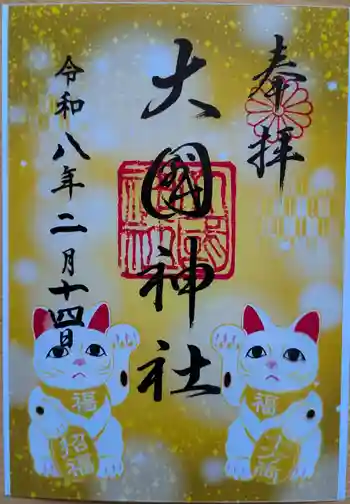 奉拝
大國神社
令和八年二月十四日
福
招福
福